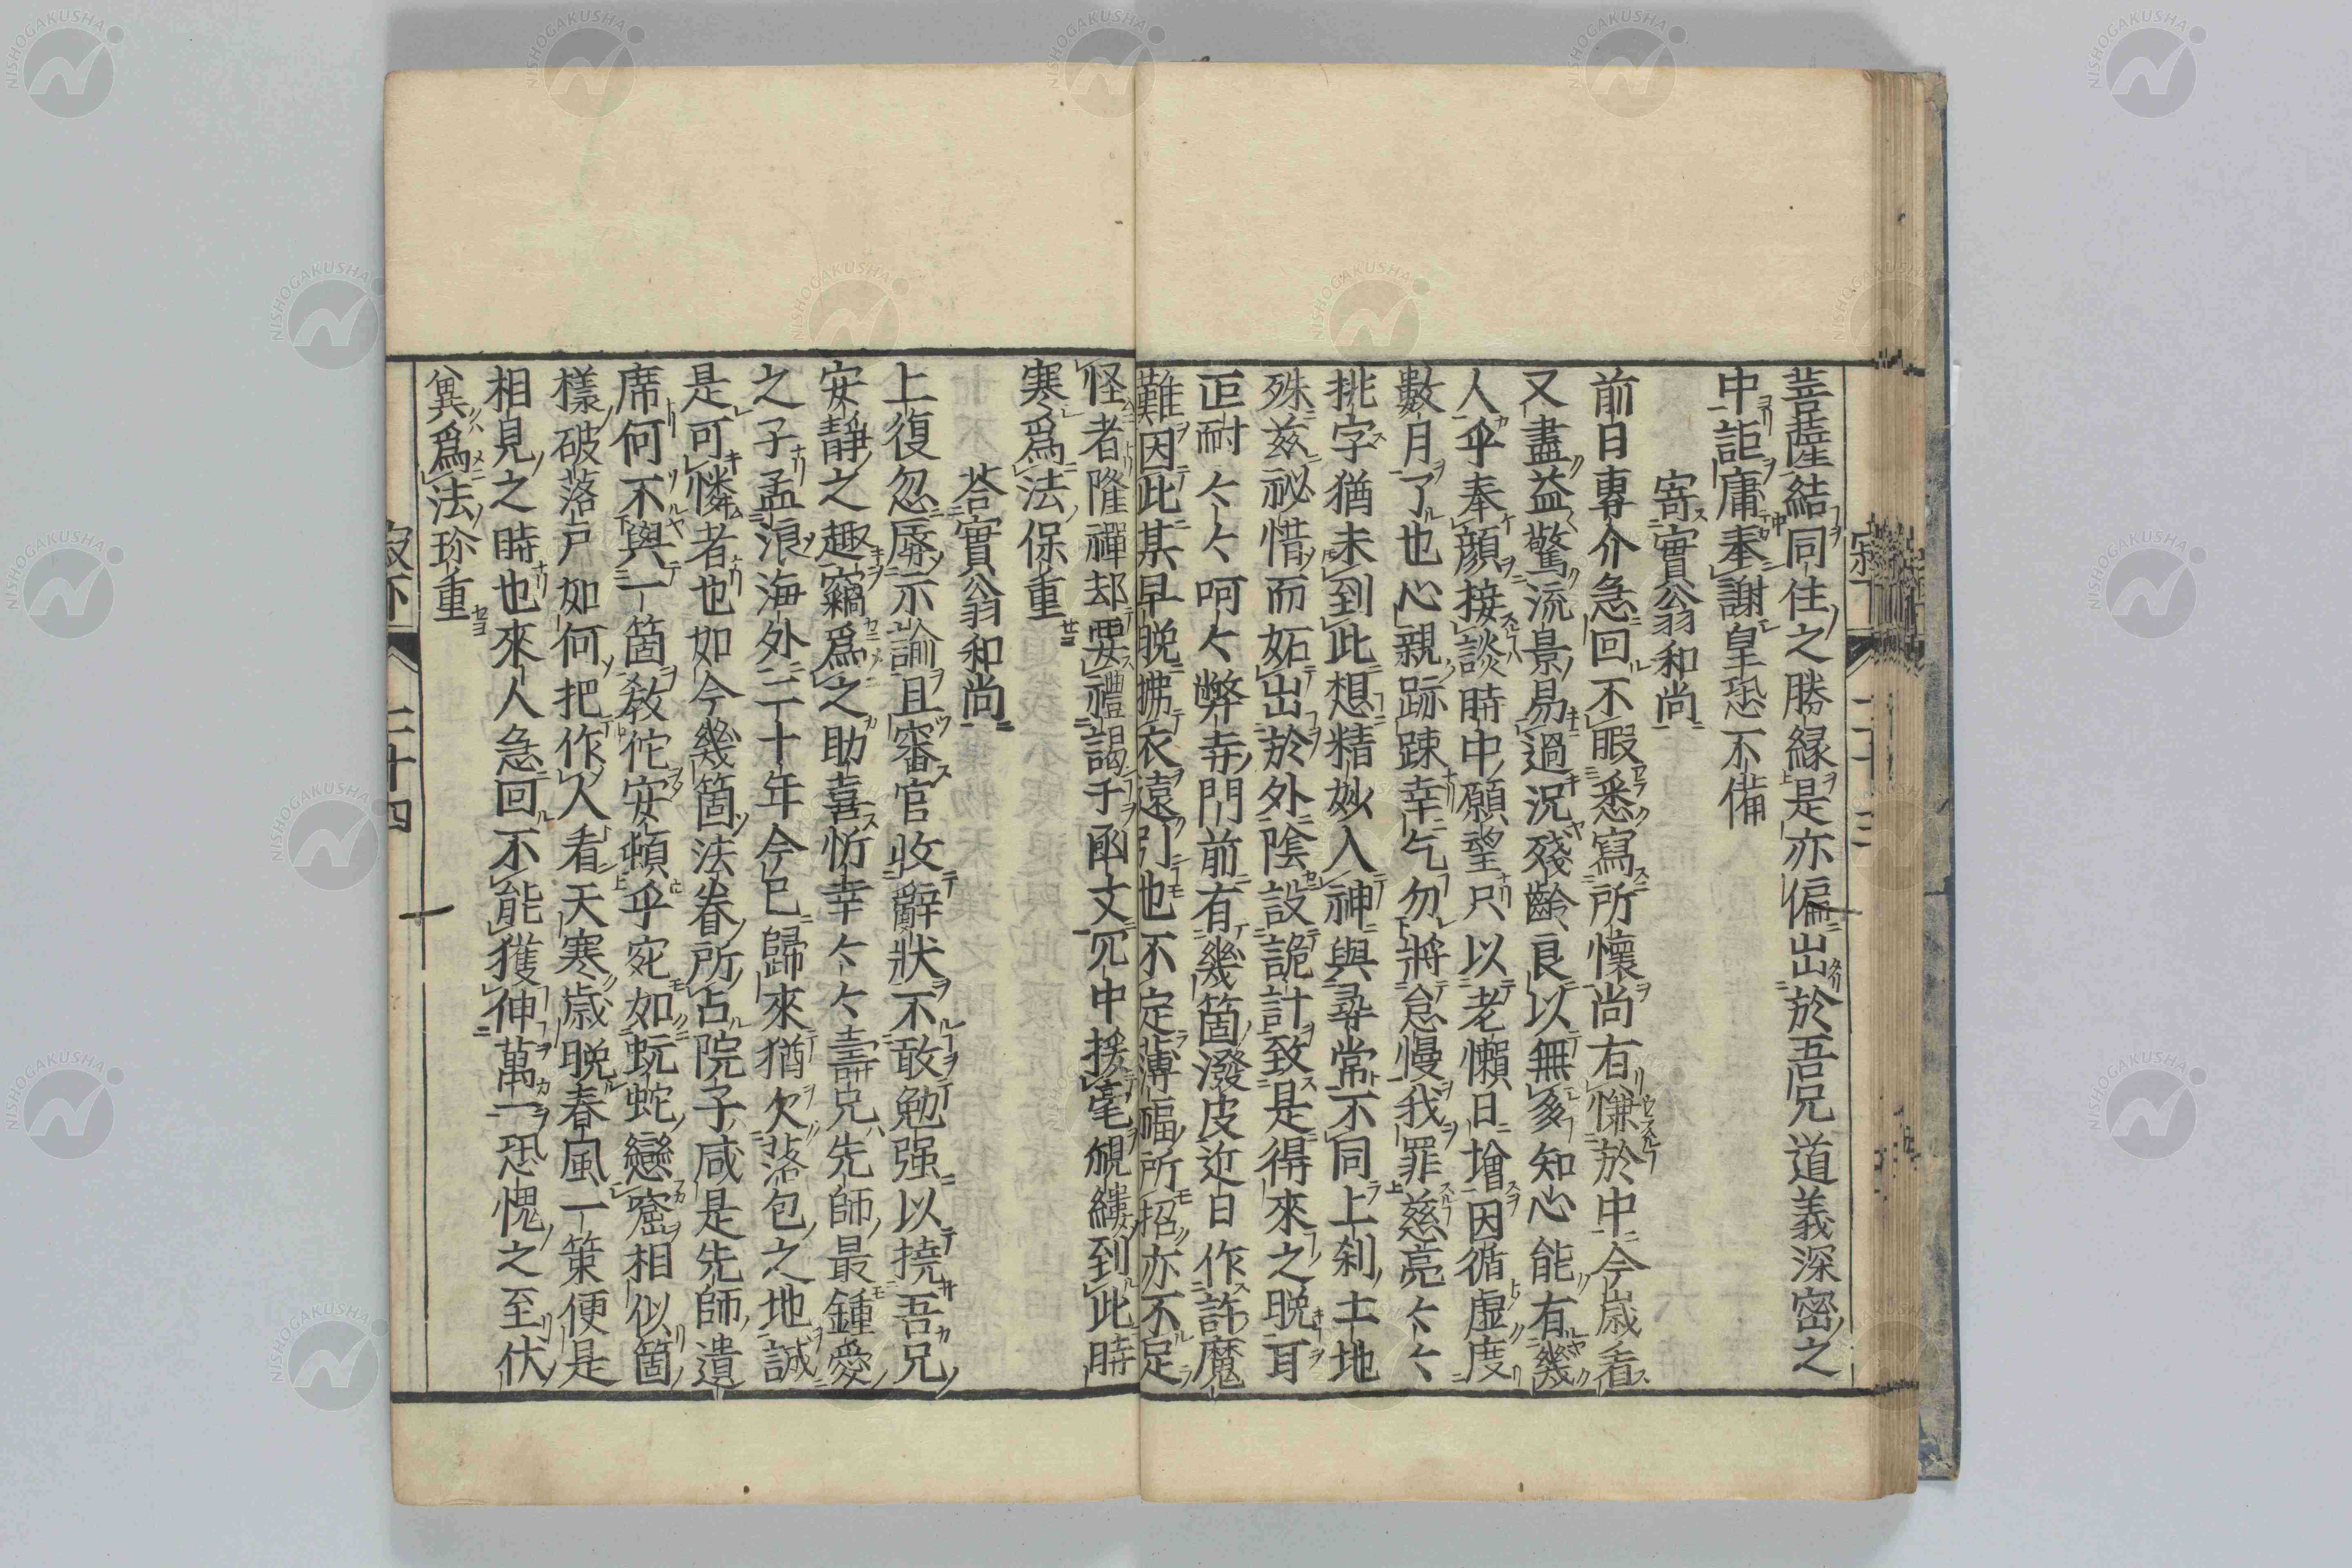 菩薩結同住之勝縁是亦偏出於吾兄道義深密之
中詎庸奉謝皇恐不備
寄實翁和尚
前日專介急回不暇悉寫所懷尚有慊於中今歲看
又盡益驚流景易過況殘齡良以無多知心能有幾
人乎奉顔接談時中願望只以老懶日增因循虛度
數月了也心親跡踈幸乞勿將怠慢我罪慈亮々々
挑字猶未到此想精妙入神與尋常不同上刹土地
殊茲祕惜而妬出於外陰設詭計致是得來之晩耳
叵耐々々呵々弊寺門前有幾箇潑皮近日作詐魔
難因此某早晩拂衣遠引也不定薄福所招亦不足
怪者隆禪却要禮謁手函丈冗中援毫覼縷到此時
寒爲法保重
荅實翁和尚
上復忽辱示諭且審官收辭狀不敢勉强以撓吾兄
安靜之趣竊爲之助喜忻幸々々壽兄先師最鍾愛
之子孟浪海外二十年今已歸來猶欠落包之地誠
是可憐者也如今幾箇法眷所占院子咸是先師遺
席何不與一箇敎佗安頓乎宛如蚖蛇戀窟相似箇
樣破落戸如何把作人看天寒歳晩春風一策便是
相見之時也來人急回不能獲伸萬一恐愧之至伏
兾爲法珍重
寂下 二十四